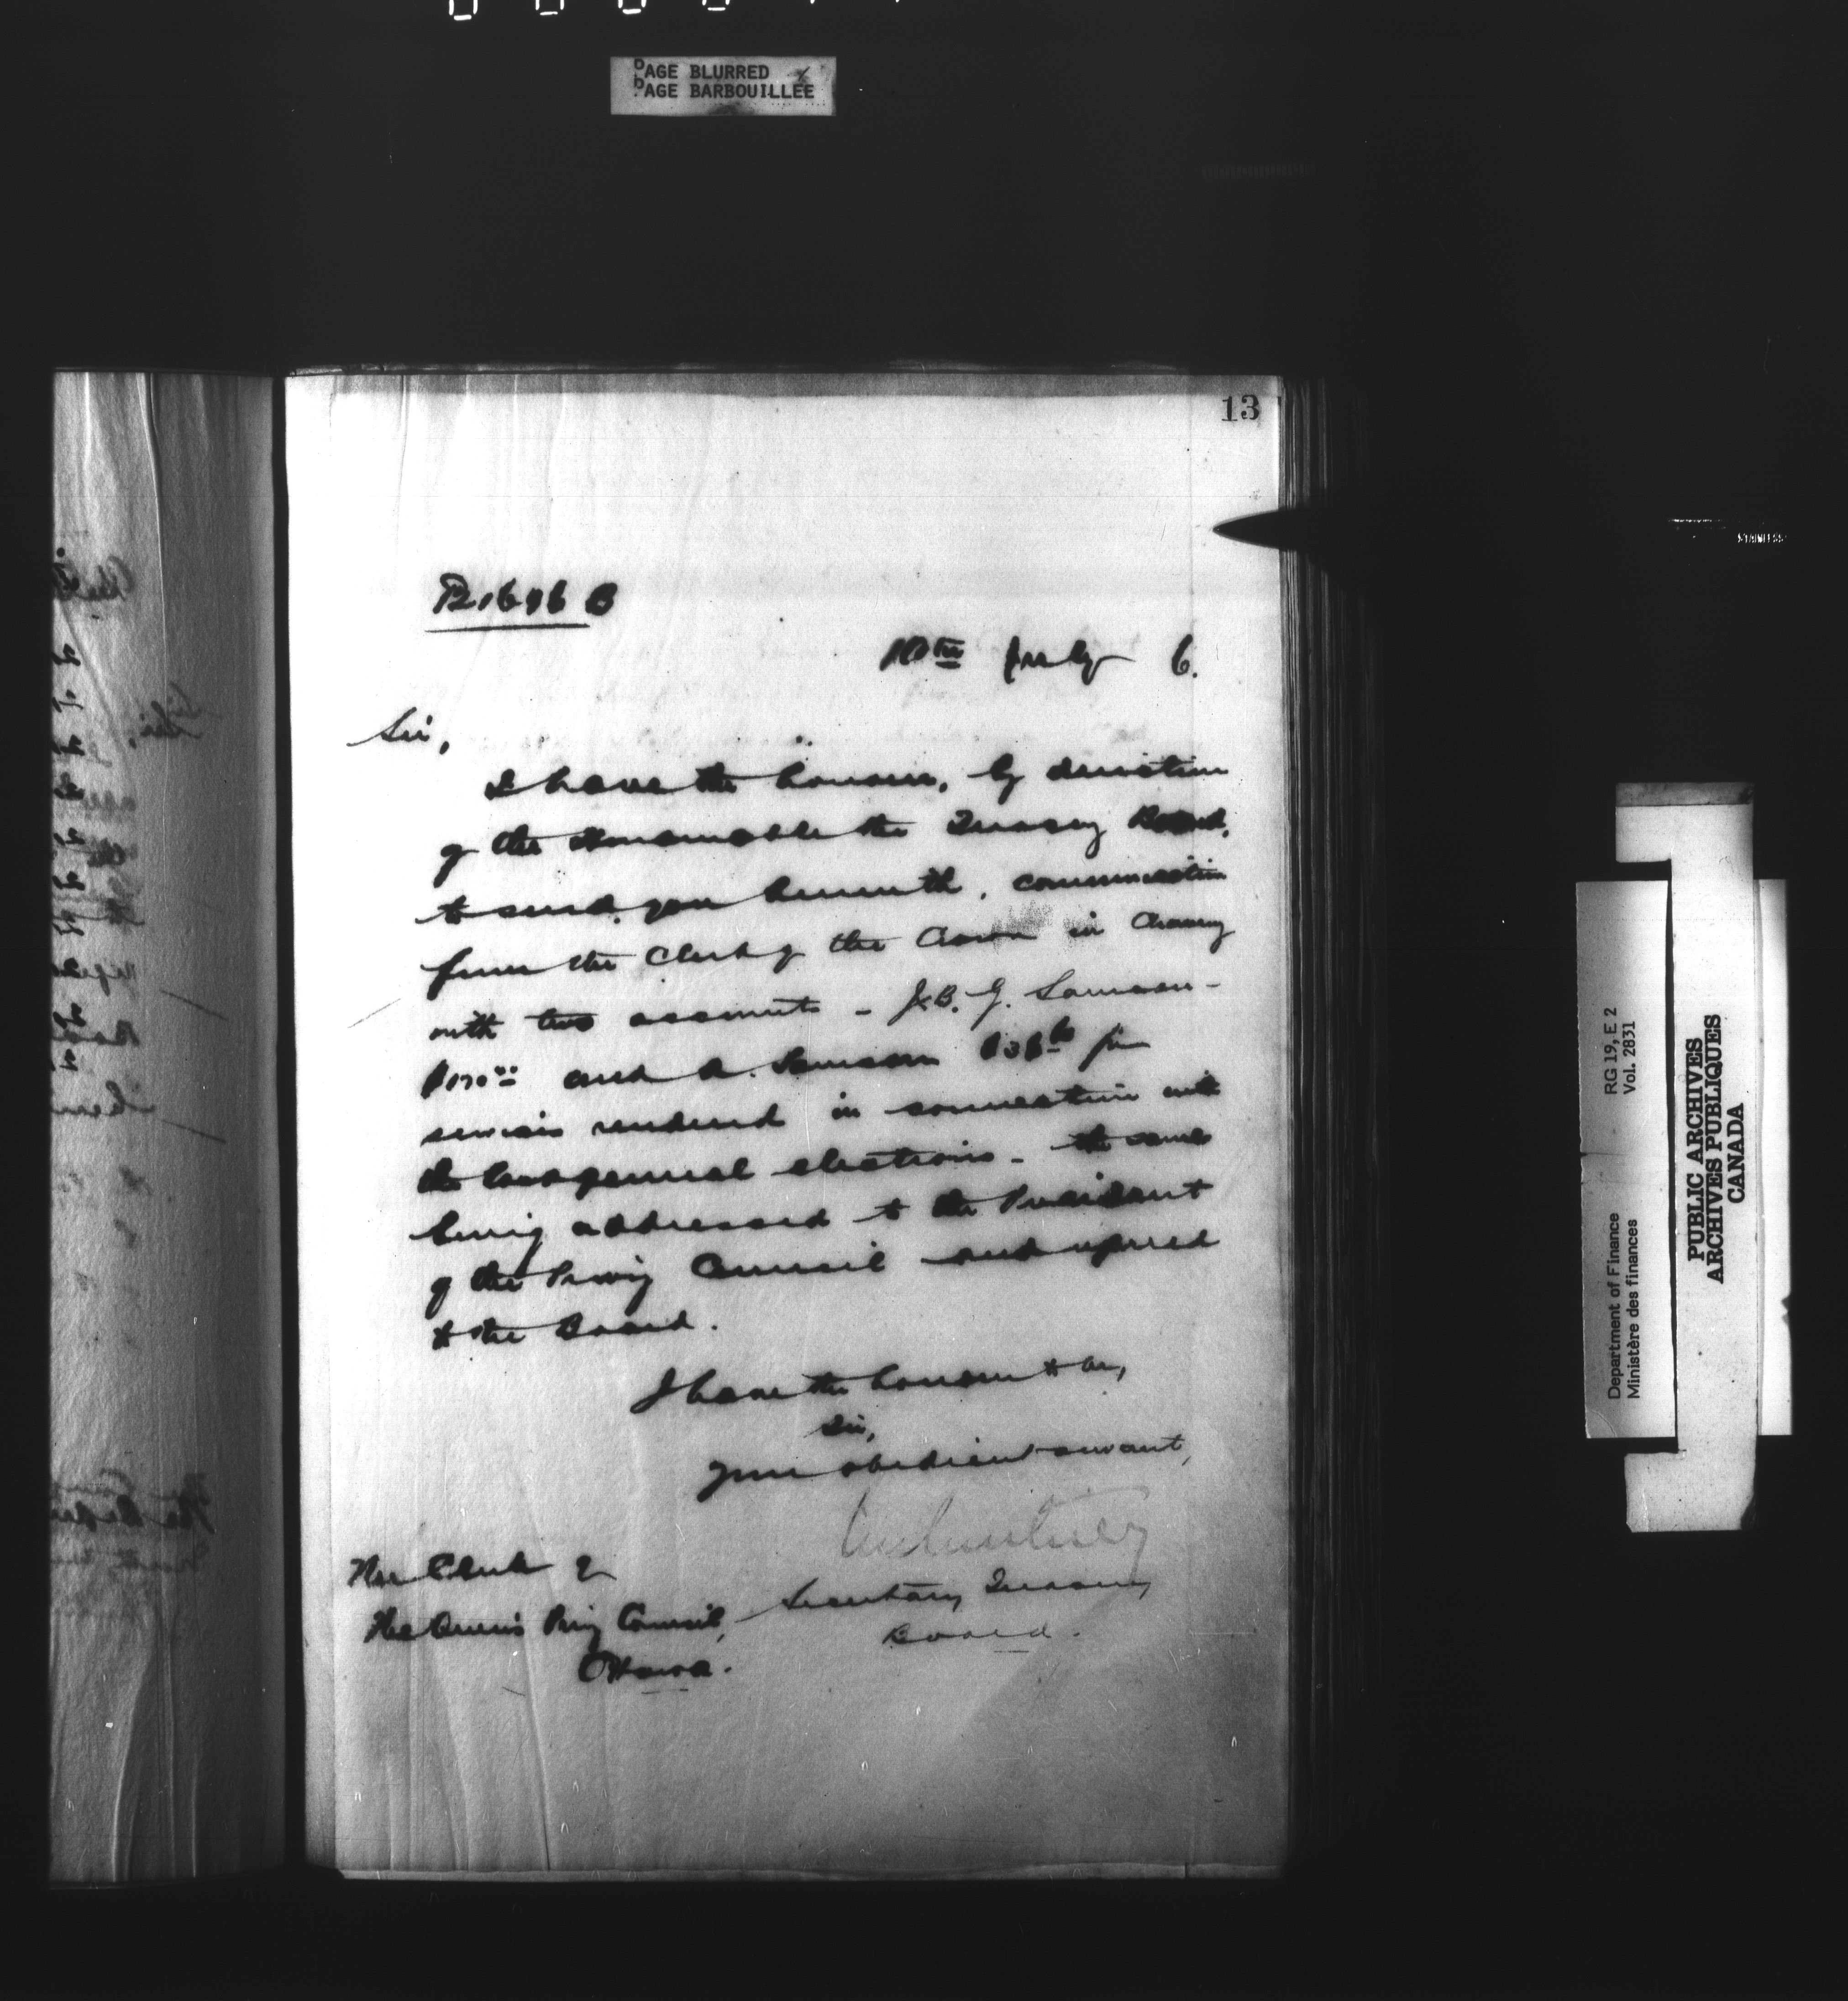 PAGE BLURRED
PAGE BARBOUILLEE
13
10th July 6.
Sir,
I have the honour, by direction
of the Honourable the Treasury Board,
to send you herewith, communication
from the Clerk of the Crown in Chancery
with two accounts - J.B. G. Samson -
and A. Samson for
services rendered in connection with
the last general elections - the same
being addressed to the President
of the Privy Council and
to the Board.
I have the honour to be,
Sir,
Your obedient servant,
The Clerk of
The Queen's Privy Council,
Ottawa.
Secretary Treasury
Board.
Department of Finance
Ministère des finances
RG 19, E 2
Vol. 2831
PUBLIC ARCHIVES
ARCHIVES PUBLIQUES
CANADA
STAINLESS